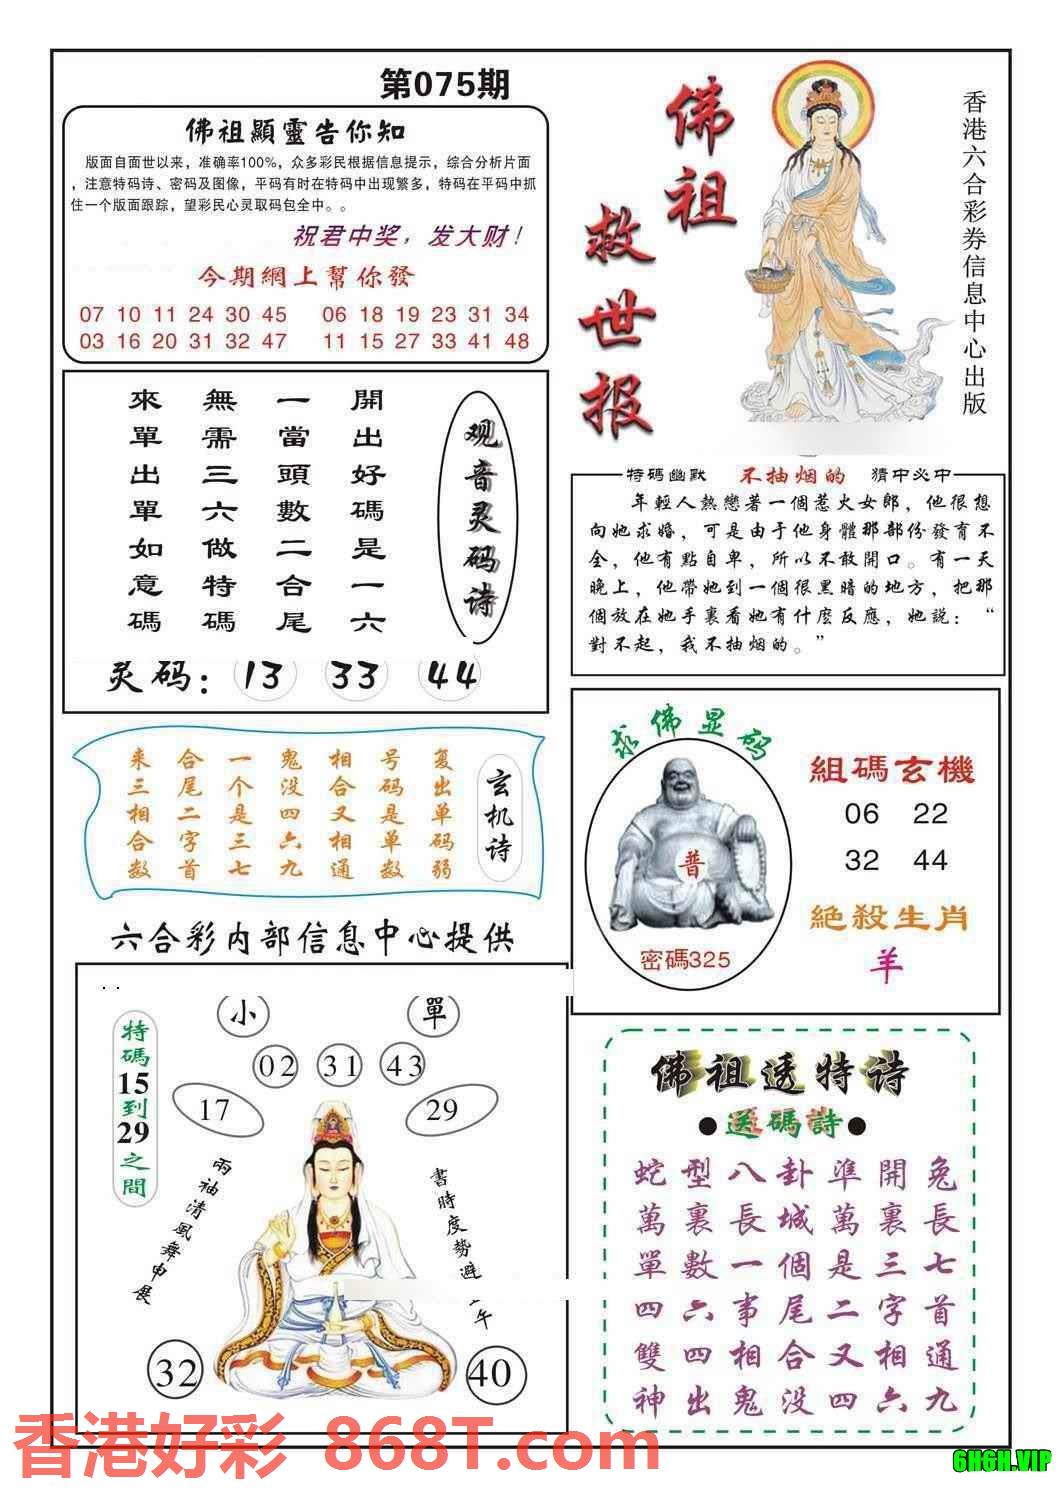 第075期
佛祖顯靈告你知
版面自面世以来，准确率100%，众多彩民根据信息提示，综合分析片面
，注意特码诗、密码及图像，平码有时在特码中出现繁多，特码在平码中抓
住一个版面跟踪，望彩民心灵取码包全中。。
祝君中奖，发大财！
今期網上幫你發
07 10 11 24 30 45 06 18 19 23 31 34
03 16 20 31 32 47 11 15 27 33 41 48
佛祖
救世报
香港六合彩券信息中心出版
观音灵码诗
開出好碼是一六
一當頭數二合尾
無需三六做特碼
來單出單如意碼
灵码：13 33 44
特碼幽默 不抽烟的 猜中必中
年輕人熱戀著一個惹火女郎，他很想
向她求婚，可是由于他身體那部份發育不
全，他有點自卑，所以不敢開口。有一天
晚上，他帶她到一個很黑暗的地方，把那
個放在她手裏看她有什麽反應，她說：“
對不起，我不抽烟的。”
玄机诗
复出单码弱
号码是单数
相合又相通
鬼没四六九
一个是三七
合尾二字首
来三相合数
求佛显码
普
密碼325
組碼玄機
06 22
32 44
絶殺生肖
羊
六合彩内部信息中心提供
小 單
02 31 43
17 29
特碼15到29之間
兩袖清風舞申展
書時度勢避
午
32 40
佛祖透特诗
●送碼詩●
蛇型八卦準開兔
萬裏長城萬裏長
單數一個是三七
四六事尾二字首
雙四相合又相通
神出鬼没四六九
香港好彩 868T.com
6H6H.VIP